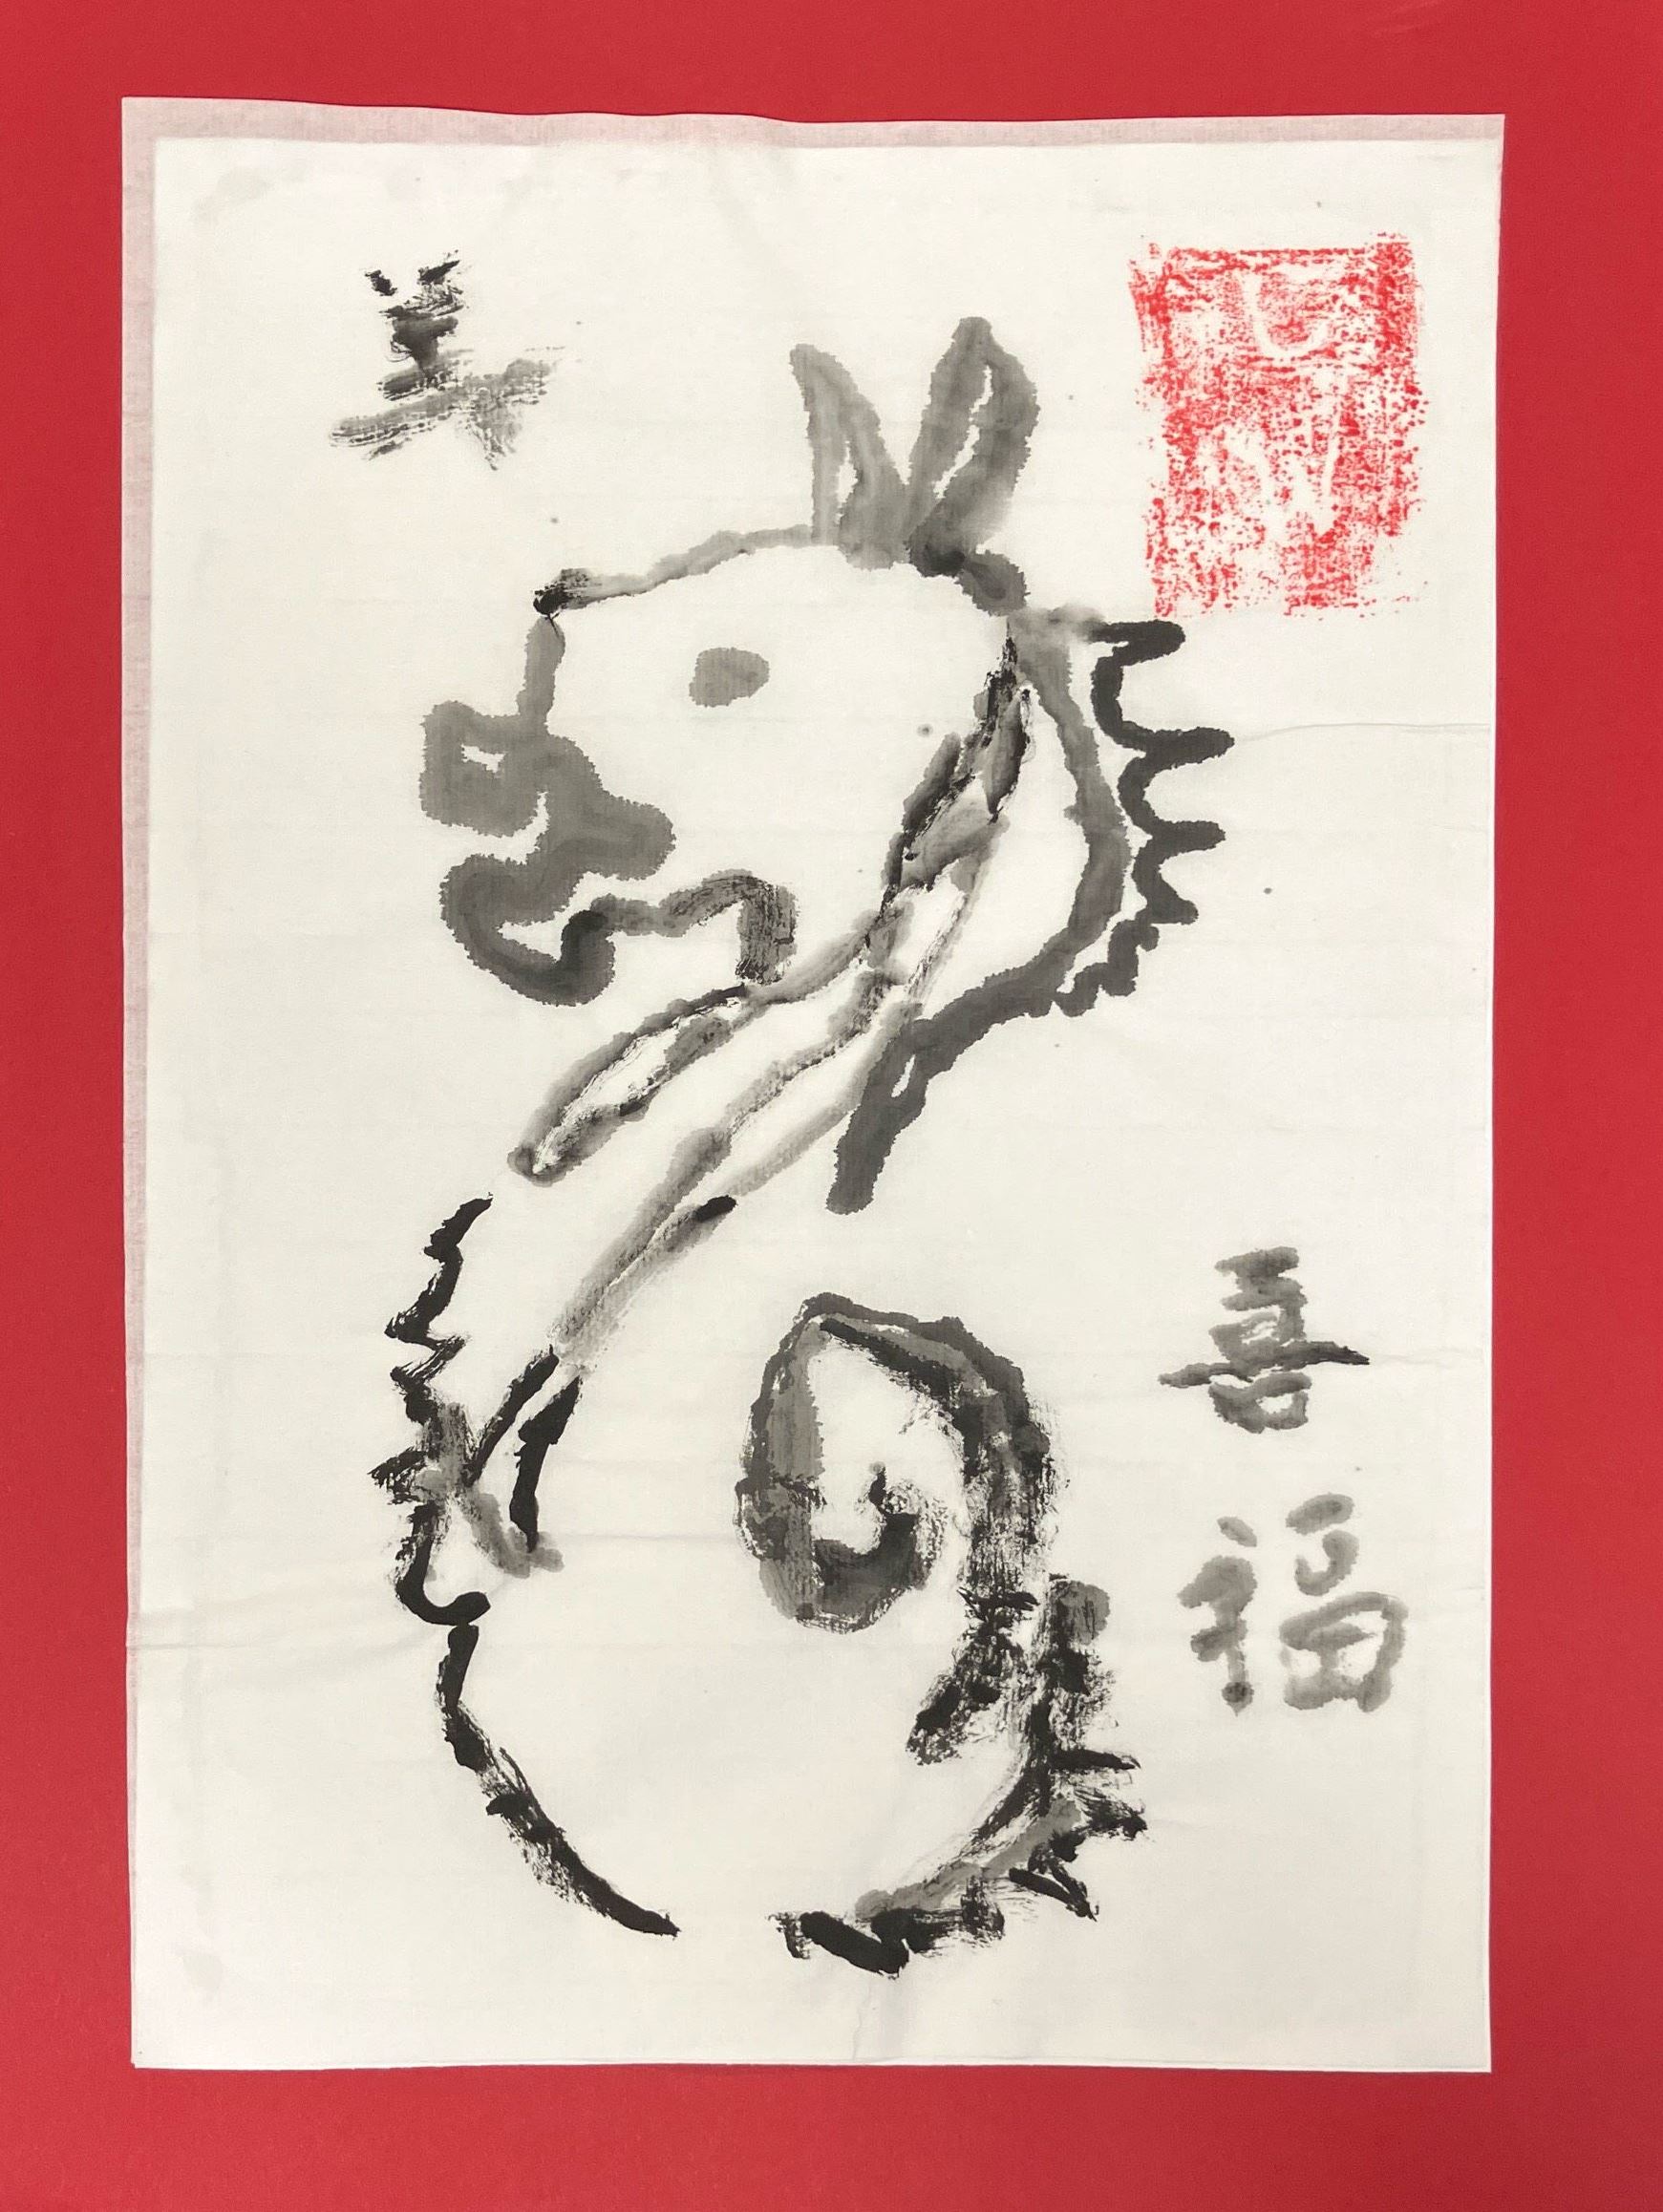 美
喜
福